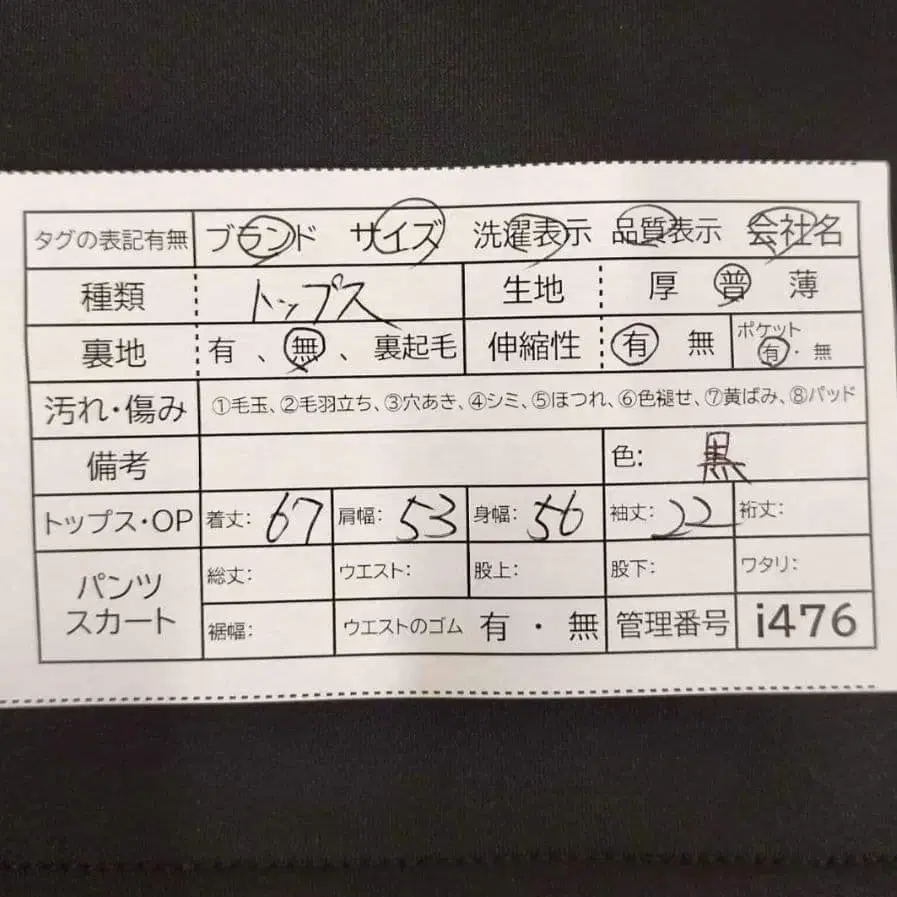 タグの表記有無 ブランド サイズ 洗濯表示 品質表示 会社名
種類 トップス 生地 厚 普 薄
裏地 有、無、裏起毛 伸縮性 有 無 ポケット 有・無
汚れ・傷み ①毛玉、②毛羽立ち、③穴あき、④シミ、⑤ほつれ、⑥色褪せ、⑦黄ばみ、⑧パッド
備考 色: 黒
トップス・OP 着丈: 67 肩幅: 53 身幅: 56 袖丈: 22 裄丈:
パンツ スカート 総丈: ウエスト: 股上: 股下: ワタリ:
裾幅: ウエストのゴム 有・無 管理番号 i476